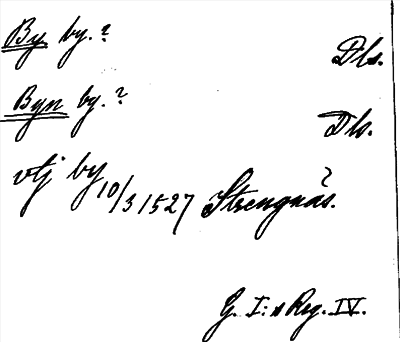 By by.? Dls.
Byn by.? Dls.
vtj by 10/3 1527 Strengnäs.
G. I:s Reg. IV.